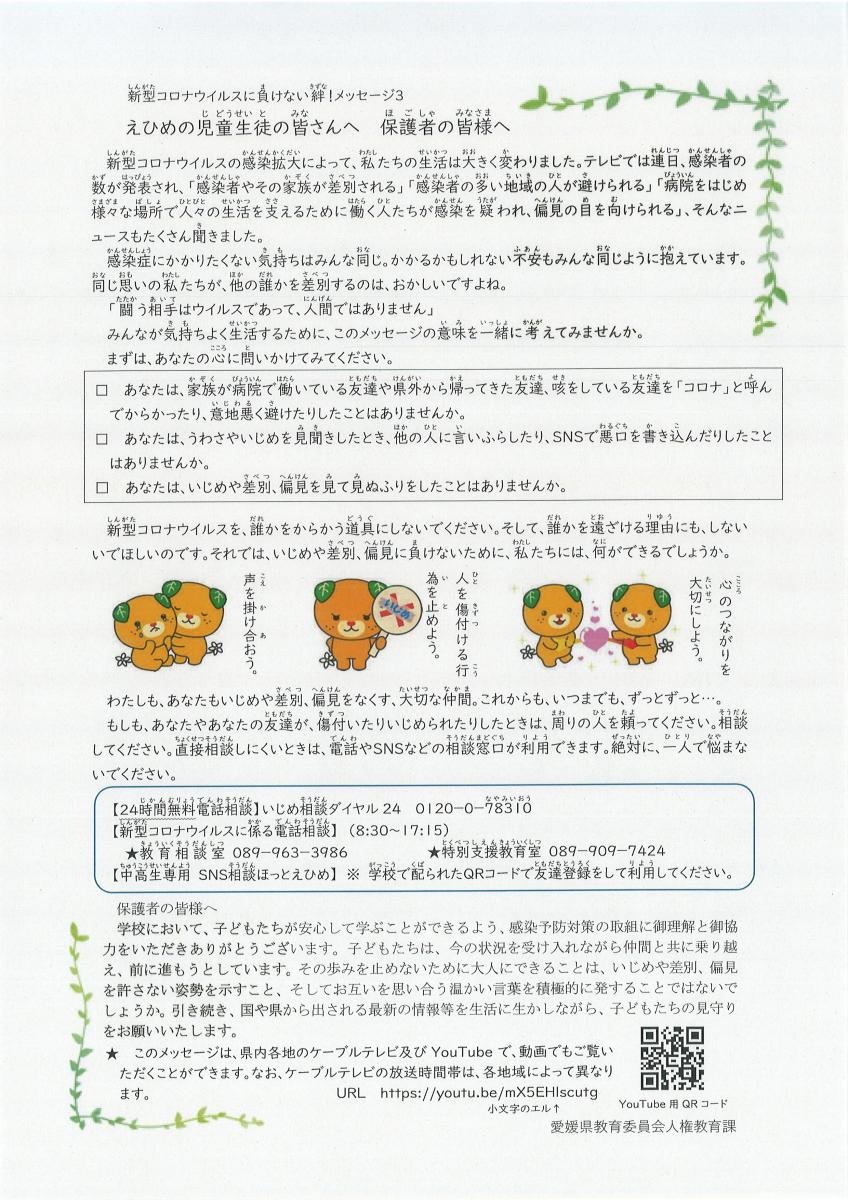 新型コロナウイルスに負けない絆！メッセージ3
えひめの児童生徒の皆さんへ　保護者の皆様へ
新型コロナウイルスの感染拡大によって、私たちの生活は大きく変わりました。テレビでは連日、感染者の
数が発表され、「感染者やその家族が差別される」「感染者の多い地域の人が避けられる」「病院をはじめ
様々な場所で人々の生活を支えるために働く人たちが感染を疑われ、偏見の目を向けられる」、そんなニ
ュースもたくさん聞きました。
感染症にかかりたくない気持ちはみんな同じ。かかるかもしれない不安もみんな同じように抱えています。
同じ思いの私たちが、他の誰かを差別するのは、おかしいですよね。
「闘う相手はウイルスであって、人間ではありません」
みんなが気持ちよく生活するために、このメッセージの意味を一緒に考えてみませんか。
まずは、あなたの心に問いかけてみてください。
□　あなたは、家族が病院で働いている友達や県外から帰ってきた友達、咳をしている友達を「コロナ」と呼ん
でからかったり、意地悪く避けたりしたことはありませんか。
□　あなたは、うわさやいじめを見聞きしたとき、他の人に言いふらしたり、SNSで悪口を書き込んだりしたこと
はありませんか。
□　あなたは、いじめや差別、偏見を見て見ぬふりをしたことはありませんか。
新型コロナウイルスを、誰かをからかう道具にしないでください。そして、誰かを遠ざける理由にも、しない
いでほしいのです。それでは、いじめや差別、偏見に負けないために、私たちには、何ができるでしょうか。
声を掛け合おう。
いじめ
人を傷付ける行
為を止めよう。
心のつながりを
大切にしよう。
わたしも、あなたもいじめや差別、偏見をなくす、大切な仲間。これからも、いつまでも、ずっとずっと…。
もしも、あなたやあなたの友達が、傷付いたりいじめられたりしたときは、周りの人を頼ってください。相談
してください。直接相談しにくいときは、電話やSNSなどの相談窓口が利用できます。絶対に、一人で悩まな
いでください。
【24時間無料電話相談】いじめ相談ダイヤル24　0120-0-78310
【新型コロナウイルスに係る電話相談】（8:30～17:15）
★教育相談室 089-963-3986　★特別支援教育室 089-909-7424
【中高生専用 SNS相談ほっとえひめ】※ 学校で配られたQRコードで友達登録をして利用してください。
保護者の皆様へ
学校において、子どもたちが安心して学ぶことができるよう、感染予防対策の取組に御理解と御協
力をいただきありがとうございます。子どもたちは、今の状況を受け入れながら仲間と共に乗り越
え、前に進もうとしています。その歩みを止めないために大人にできることは、いじめや差別、偏見
を許さない姿勢を示すこと、そしてお互いを思い合う温かい言葉を積極的に発することではないで
しょうか。引き続き、国や県から出される最新の情報等を生活に生かしながら、子どもたちの見守り
をお願いいたします。
★　このメッセージは、県内各地のケーブルテレビ及び YouTube で、動画でもご覧い
ただくことができます。なお、ケーブルテレビの放送時間帯は、各地域によって異なり
ます。　URL　https://youtu.be/mX5EHlscutg
小文字のエル↑
YouTube用QRコード
愛媛県教育委員会人権教育課